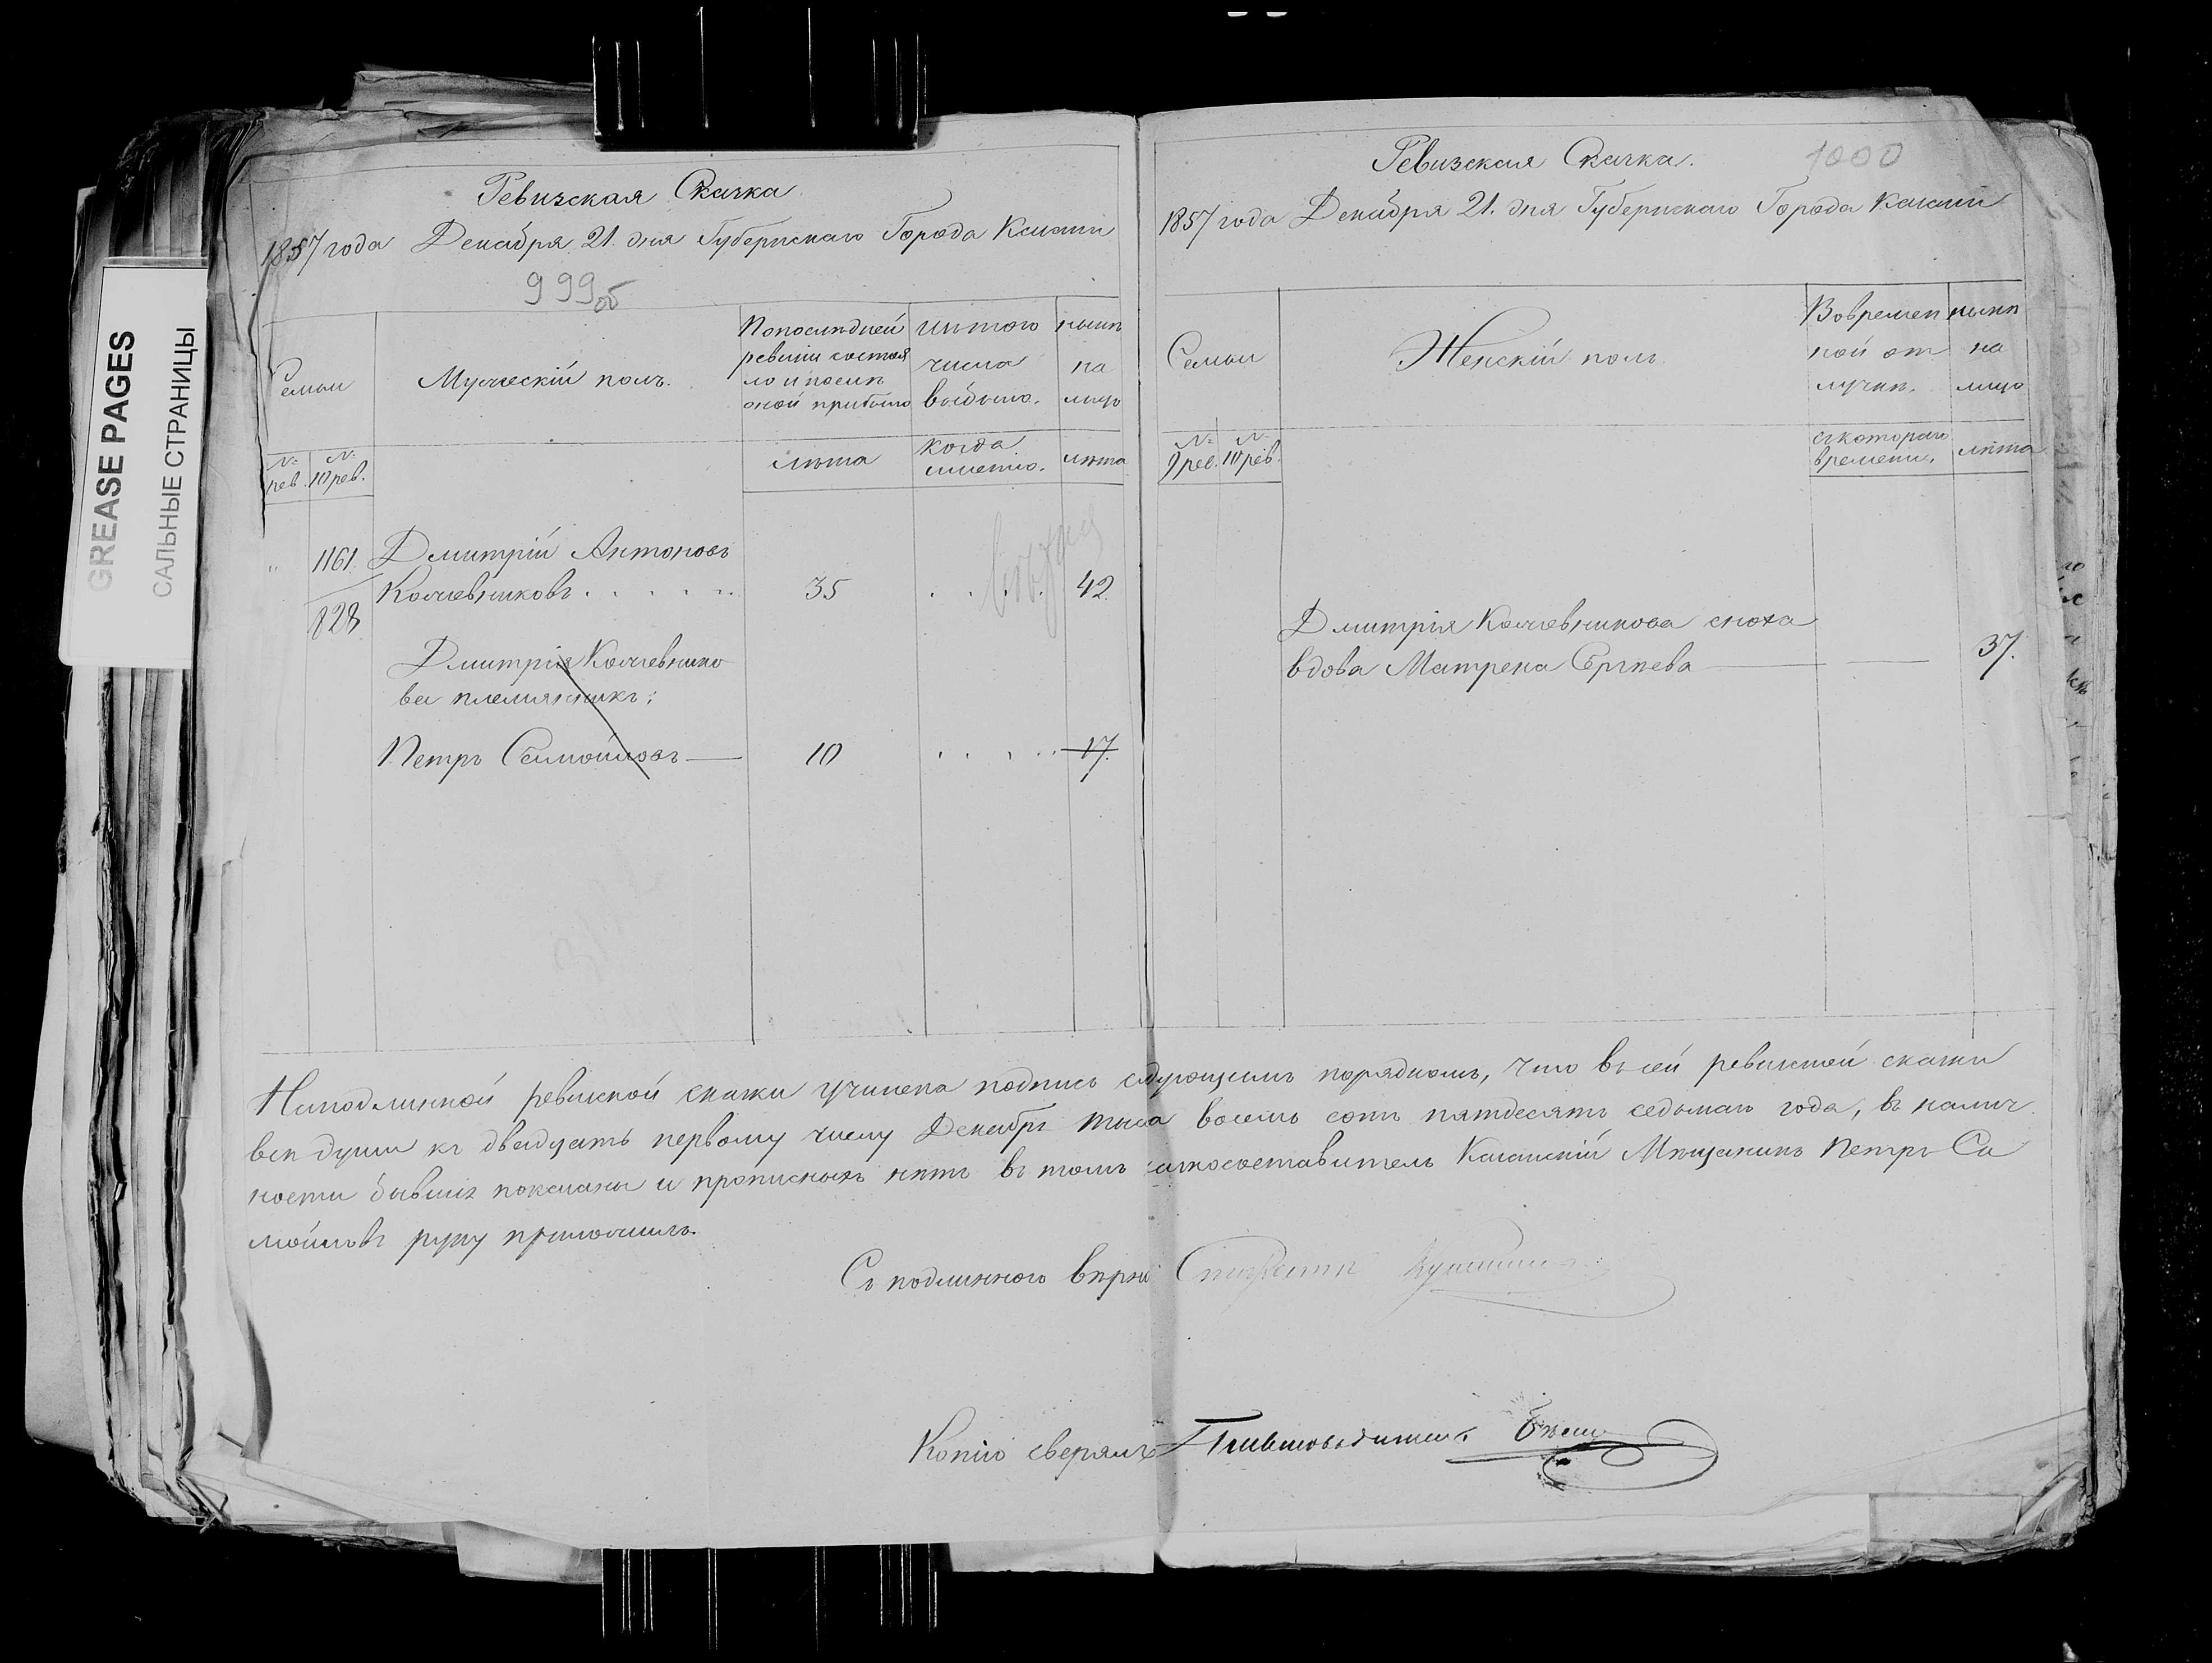 GREASE PAGES
САЛЬНЫЕ СТРАНИЦЫ
Ревизская Скачка
1857 года Декабря 21. дня Губернскаго Города Казани
999об
Семьи
Мужескій полъ.
По последней ревизіи состояло и после оной прибыло
Изъ того числа выбыло.
ныне на лицо
№ рев.
№ 10 рев.
лета
когда именно.
лета
" 1161. Дмитрій Антоновъ
828 Кожевниковъ . . . . . 35 . . . . 42.
Дмитрія Кожевнико
ва племянникъ:
Петръ Самойловъ — 10 . . . . 17.
Ревизская Скачка.
1000
1857 года Декабря 21. дня Губернскаго Города Казани
Семьи
Женскій полъ.
Во временной отлучке.
ныне на лицо
№ 9 рев.
№ 10 рев.
съ котораго времени.
лѣта
Дмитрія Кожевникова сноха
вдова Матрена Сергѣева — — 37.
На подлинной ревиской скачки учинена подпись следующимъ порядкомъ, что въ сей ревиской скачки
все души къ двадцать первому числу Декабрь тыса восемь сотъ пятдесятъ седьмаго года, въ налич
ности бывшіе показаны и прописныхъ нѣтъ въ томъ скоставитель Казанскій Мѣщанинъ Петръ Са
мойловъ руку приложилъ.
Съ подлинного вѣрно Староста
Копію сверялъ Письмоводитель